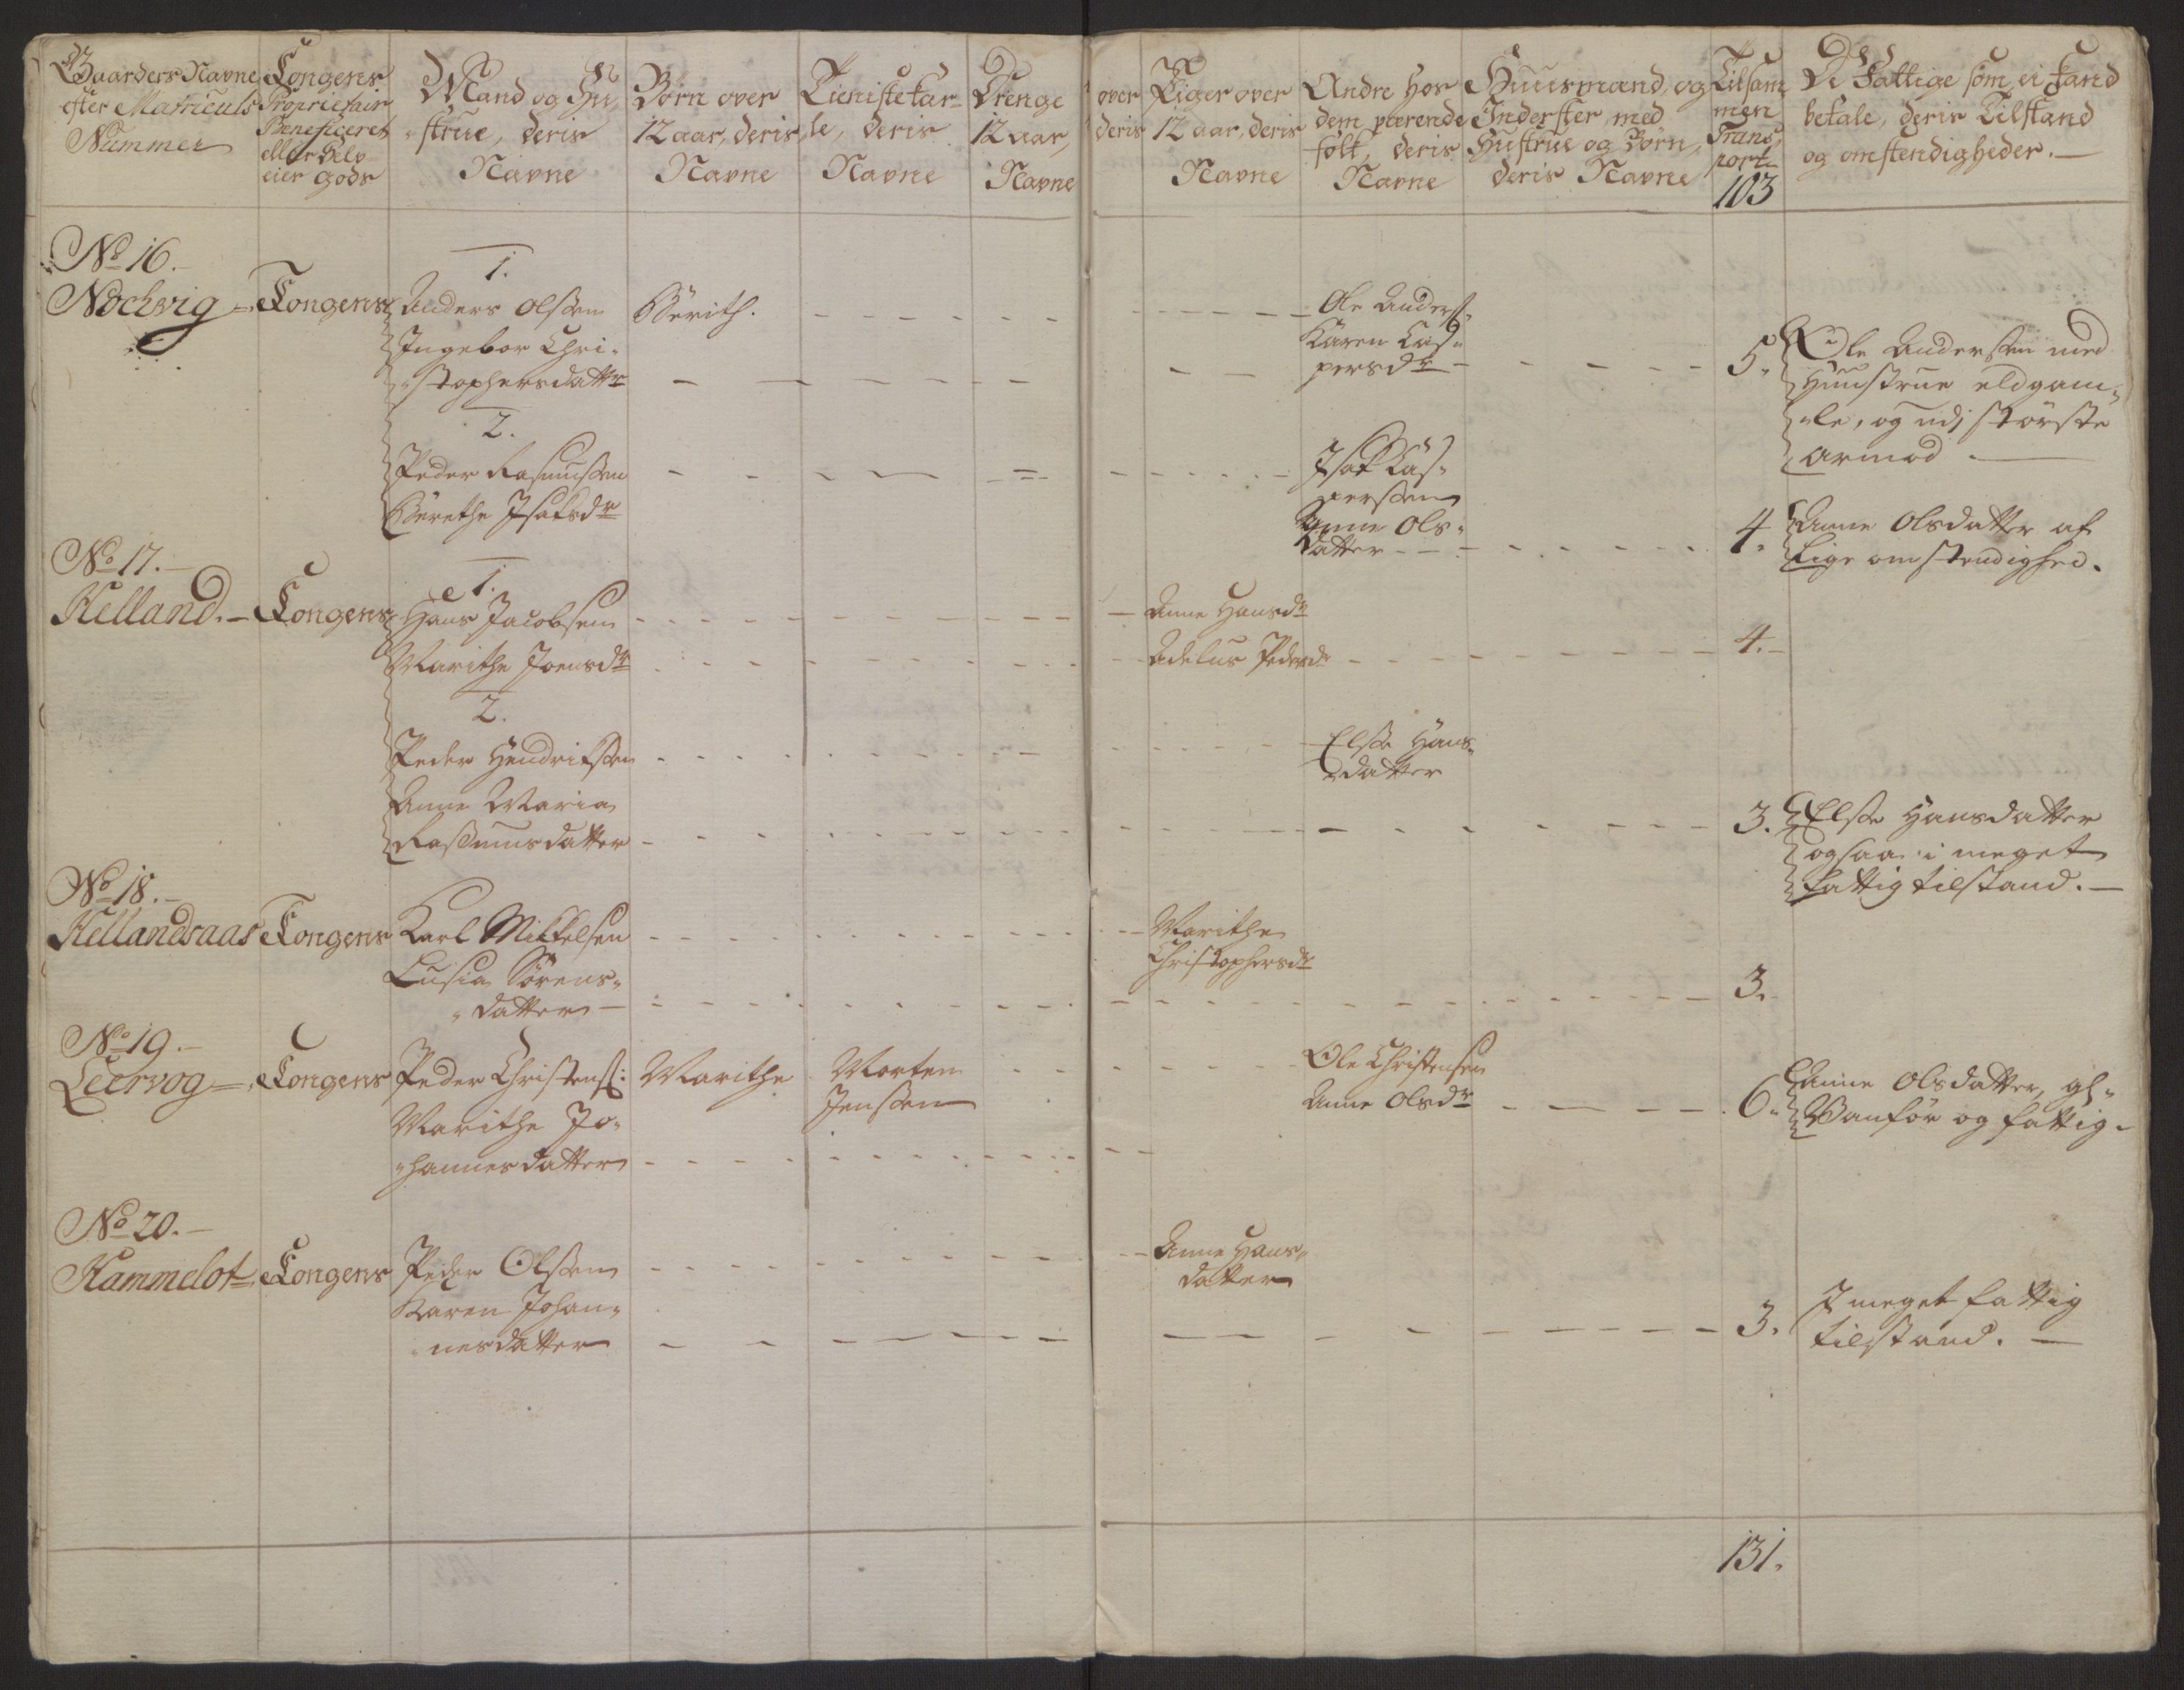 Gaarders Navne
efter Matriculs
Nummer
Kongens
Proprietair
Beneficeret
eller Selv
eier gods
Mand og Hu,
strue, deris
Navne
Børn over
12 aar, deris
Navne
Tienistekar-
le, deris
Navne
Drenge over
12 aar, deris
Navne
Piger over
12 aar, deris
Navne
Andre hos
dem værende
folk, deris
Navne
Huusmænd, og
Inderster, med
Hustrue og Børn,
deris Navne
Tilsam
men
Trans,
port
103
De Fattige som ei kand
betale, deris Tilstand
og omstendigheder. —
No 16.
Nochvig — Kongens
1.
Anders Olssen
Ingebor Chri-
stophersdattr
Berith.
Ole Anders:
Karen Cas-
persdr
5.
Ole Anderssen med
Huustrue eldgam-
le, og udj største
armod.
2.
Peder Rasmussen
Berethe Isaksdr
Isak Cas-
perssen
Anne Ols-
datter
4.
Anne Olsdatter af
lige omstendighed.
No 17.
Helland. — Kongens
1.
Hans Jacobsen
Marithe Joensdr
Anne Hansdr
Adelus Pedersdr
4.
2.
Peder Hendrikssen
Anne Maria
Rasmusdatter
Elsse Hans-
datter
3.
Elsse Hansdatter
ogsaa i meget
fattig tilstand. —
No 18.
Hellandsaas Kongens
Karl Mikkelsen
Lusia Sørens-
datter
Marithe
Christophersdr
3.
No 19.
Leervog — Kongens
Peder Christens:
Marithe Jo-
hannesdatter
Marithe
Morten
Jenssen
Ole Christensen
Anne Olsdr
6.
Anne Olsdatter, gl:
Vanför og fattig.
No 20.
Hammelot — Kongens
Peder Olssen
Karen Johan-
nesdatter
Anne Hans-
datter
3.
I meget fattig
tilstand. —
131.